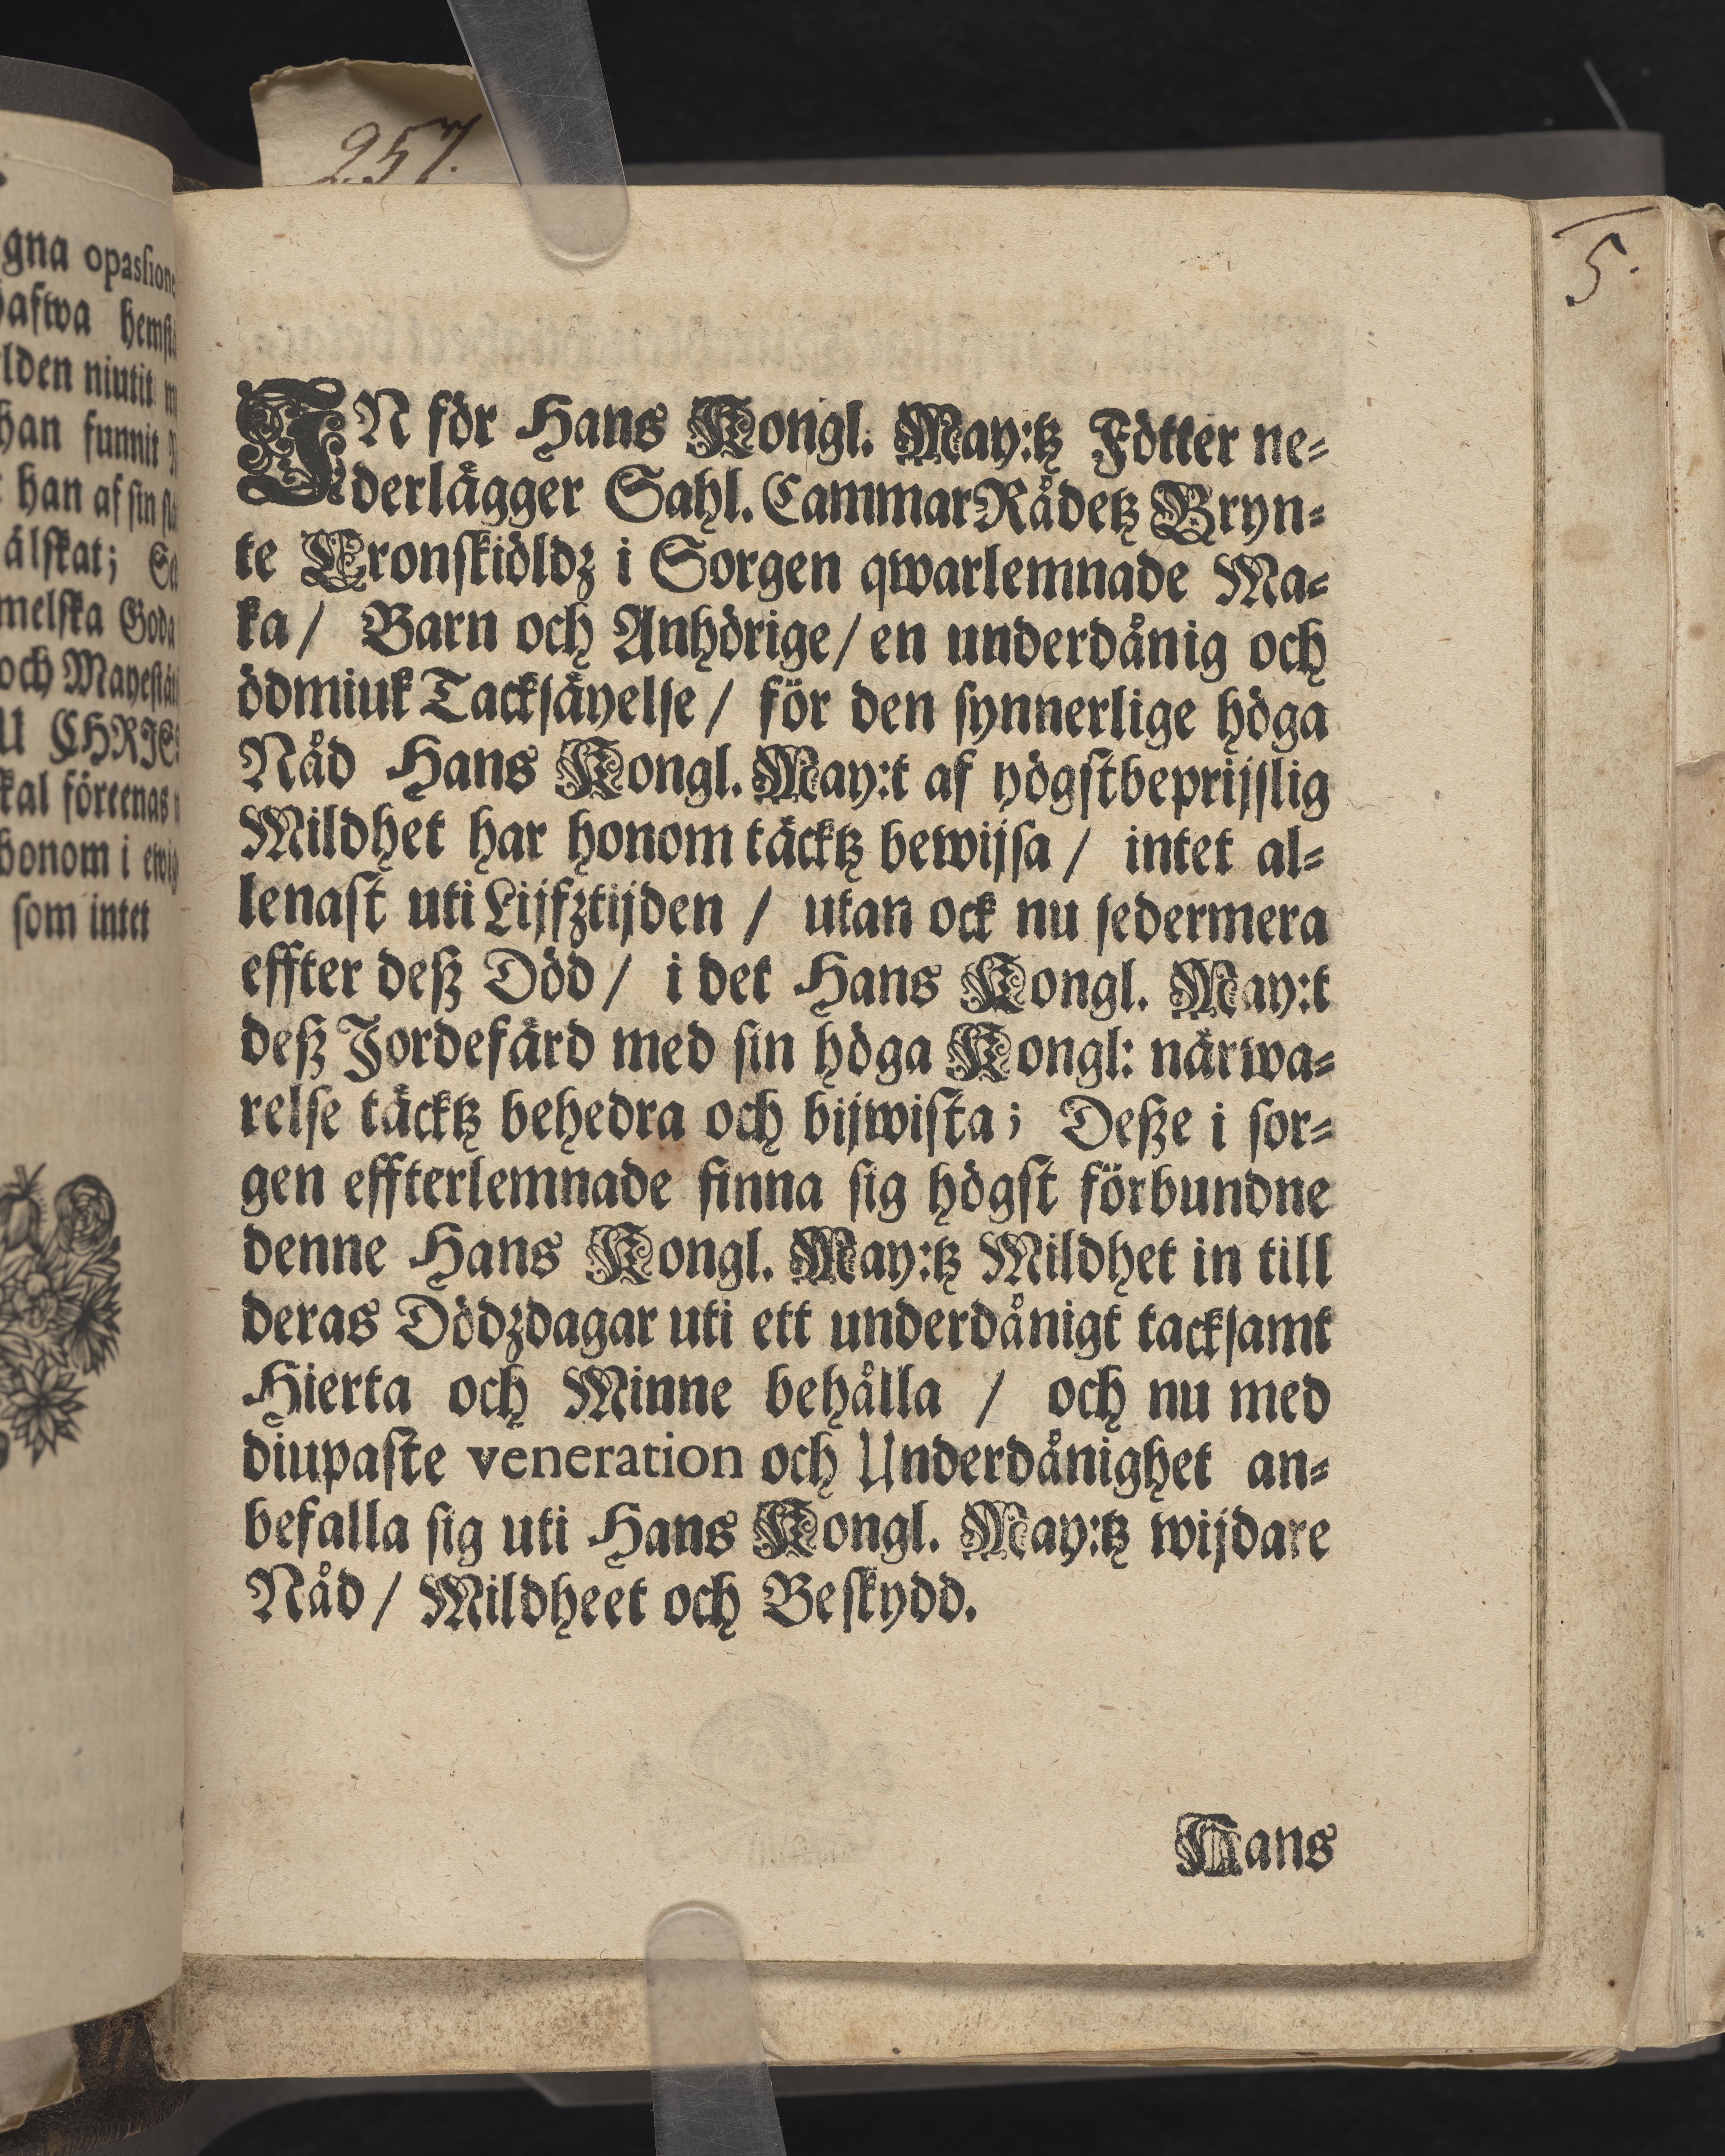 257.
5.
gna opasſione
hemſt
lden niutit
han funnit
han af ſin
älſkat;
melſka Goda
och Mayeſtä
U CHRIS
kal föreenas
honom i ewig
ſom intet
IN för Hans Kongl. May:tz Fötter ne⸗
derlägger Sahl. CammarRådetz Bryn⸗
te Cronſkiöldz i Sorgen qwarlemnade Ma⸗
ka/ Barn och Anhörige/ en underdånig och
ödmiuk Tackſäyelſe/ för den ſynnerlige höga
Nåd Hans Kongl. May:t af yögſtbeprijſlig
Mildhet har honom täcktz bewijſa/ intet al⸗
lenaſt uti Lijfztijden / utan ock nu ſedermera
effter deſz Död/ i det Hans Kongl. May:t
deſz Jordefärd med ſin höga Kongl: närwa⸗
relſe täcktz behedra och bijwiſta; Deſze i ſor⸗
gen effterlemnade finna ſig högſt förbundne
denne Hans Kongl. May:tz Mildhet in till
deras Dödzdagar uti ett underdånigt tackſamt
Hierta och Minne behålla / och nu med
diupaſte veneration och Underdånighet an⸗
befalla ſig uti Hans Kongl. May:tz wijdare
Nåd/ Mildheet och Beſkydd.
Hans